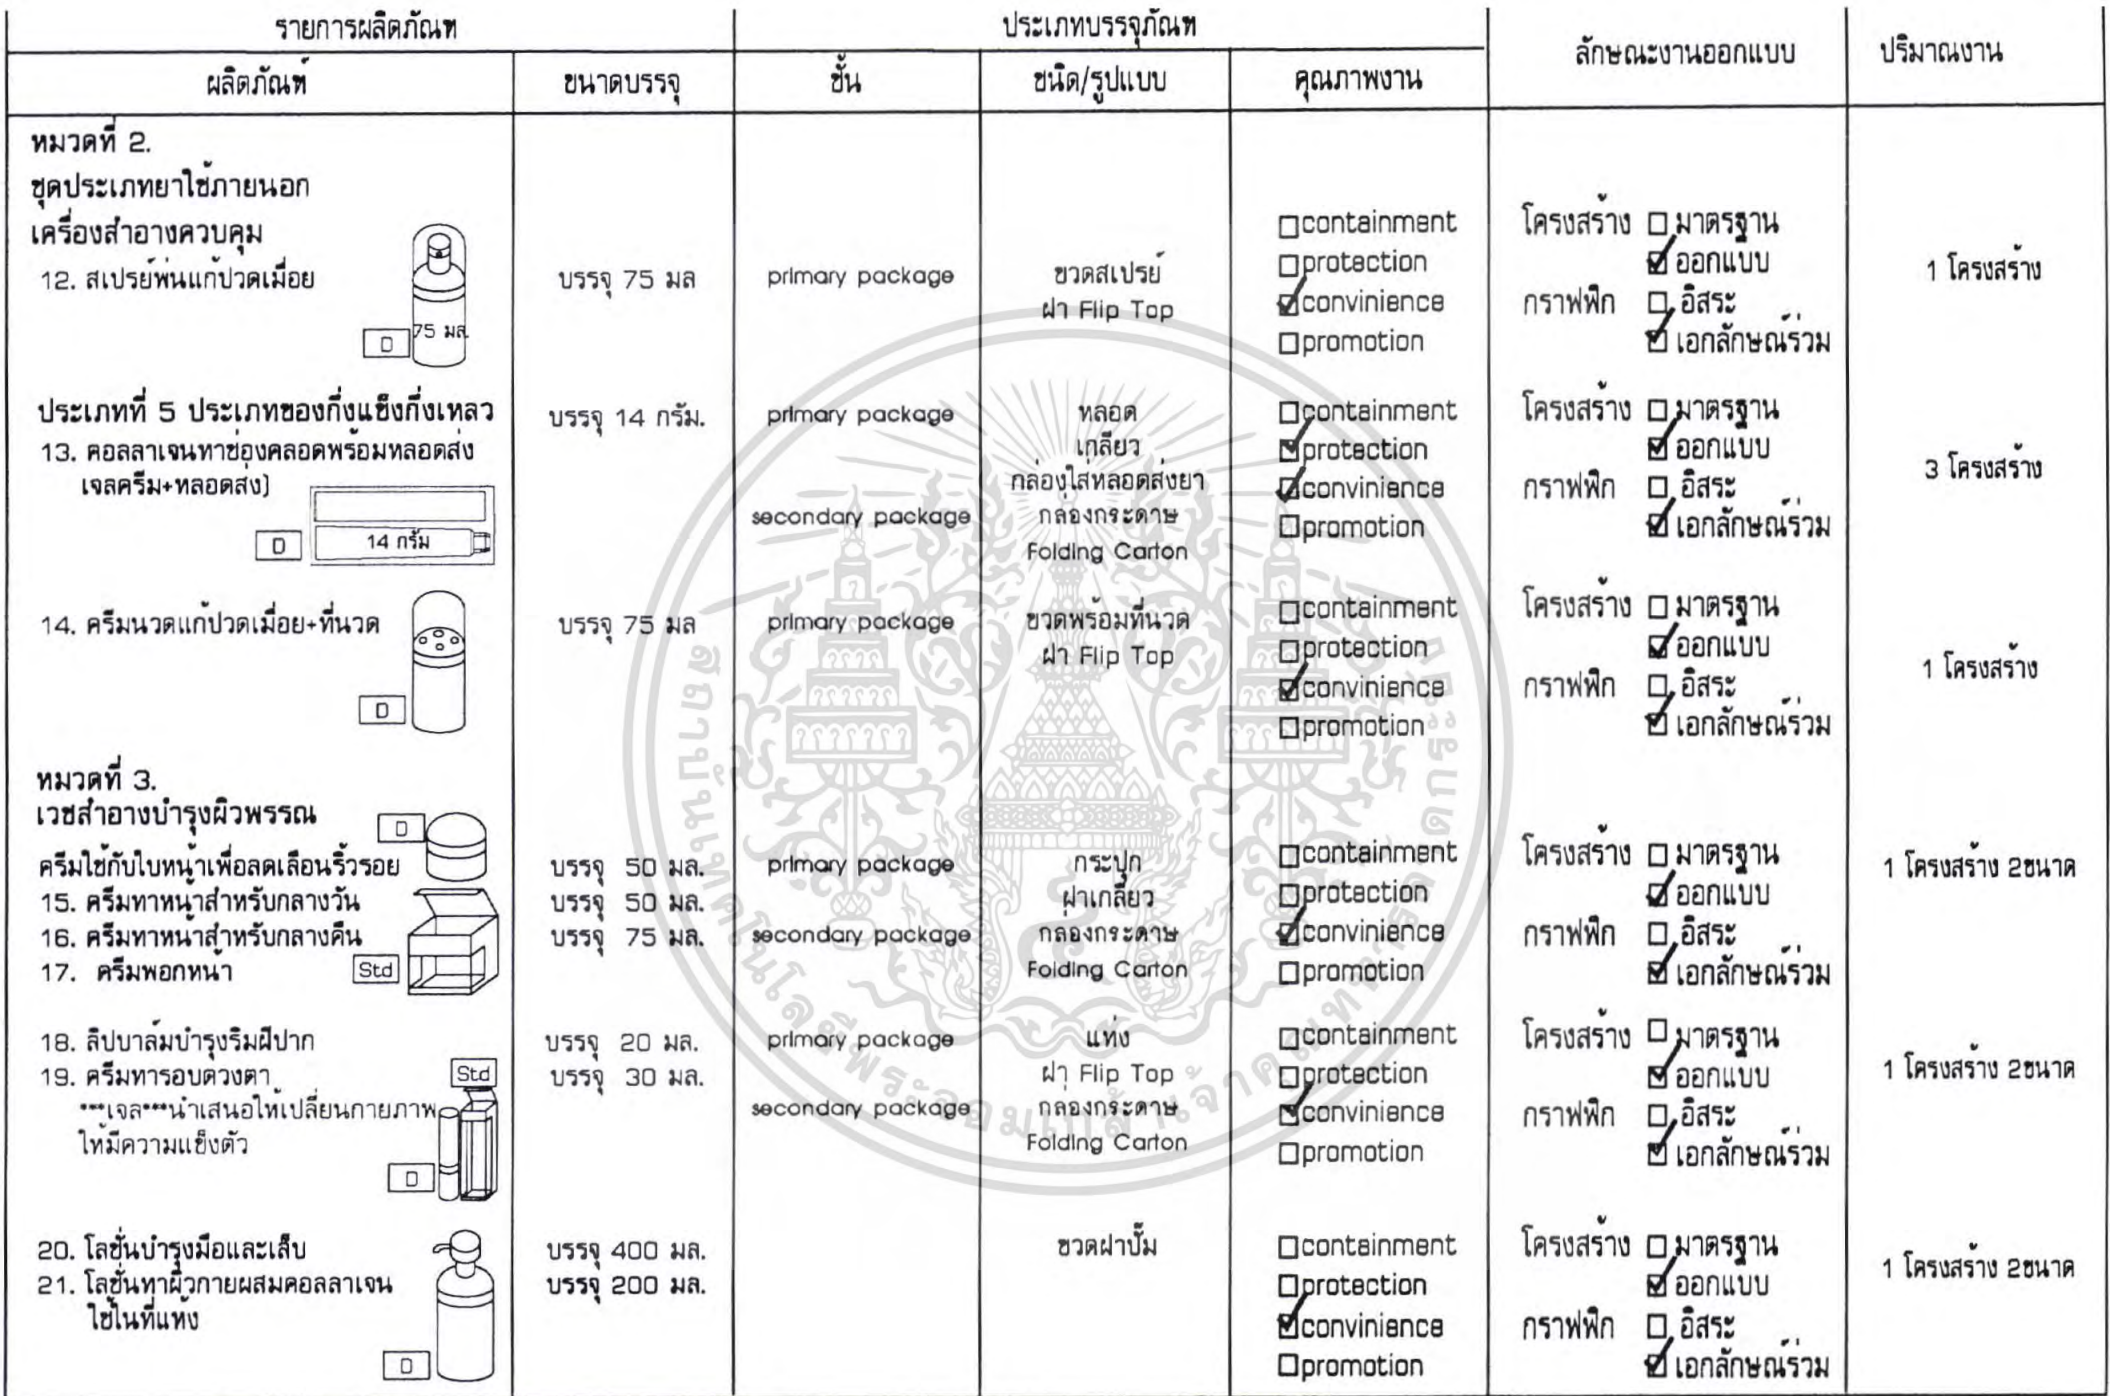 รายการผลิตภัณฑ์
ประเภทบรรจุภัณฑ์
ลักษณะงานออกแบบ
ปริมาณงาน
ผลิตภัณฑ์
ขนาดบรรจุ
ชั้น
ชนิด/รูปแบบ
คุณภาพงาน
หมวดที่ 2.
ชุดประเภทยาใช้ภายนอก
เครื่องสำอางควบคุม
12. สเปรย์พ่นแก้ปวดเมื่อย
75 มล.
D
บรรจุ 75 มล
primary package
ขวดสเปรย์
ฝา Flip Top
☐containment
☐protection
☑convinience
☐promotion
โครงสร้าง ☐ มาตรฐาน
☑ ออกแบบ
กราฟฟิก ☐ อิสระ
☑ เอกลักษณ์ร่วม
1 โครงสร้าง
ประเภทที่ 5 ประเภทของกึ่งแข็งกึ่งเหลว
13. คอลลาเจนทาช่องคลอดพร้อมหลอดส่ง
เจลครีม+หลอดส่ง)
D
14 กรัม
บรรจุ 14 กรัม.
primary package
secondary package
หลอด
เกลียว
กล่องใส่หลอดส่งยา
กล่องกระดาษ
Folding Carton
☐containment
☑protection
☑convinience
☐promotion
โครงสร้าง ☐ มาตรฐาน
☑ ออกแบบ
กราฟฟิก ☐ อิสระ
☑ เอกลักษณ์ร่วม
3 โครงสร้าง
14. ครีมนวดแก้ปวดเมื่อย+ที่นวด
D
บรรจุ 75 มล
primary package
ขวดพร้อมที่นวด
ฝา Flip Top
☐containment
☐protection
☑convinience
☐promotion
โครงสร้าง ☐ มาตรฐาน
☑ ออกแบบ
กราฟฟิก ☐ อิสระ
☑ เอกลักษณ์ร่วม
1 โครงสร้าง
หมวดที่ 3.
เวชสำอางบำรุงผิวพรรณ
D
ครีมใช้กับใบหน้าเพื่อลดเลือนริ้วรอย
15. ครีมทาหน้าสำหรับกลางวัน
16. ครีมทาหน้าสำหรับกลางคืน
17. ครีมพอกหน้า
Std
บรรจุ 50 มล.
บรรจุ 50 มล.
บรรจุ 75 มล.
primary package
secondary package
กระปุก
ฝาเกลียว
กล่องกระดาษ
Folding Carton
☐containment
☐protection
☑convinience
☐promotion
โครงสร้าง ☐ มาตรฐาน
☑ ออกแบบ
กราฟฟิก ☐ อิสระ
☑ เอกลักษณ์ร่วม
1 โครงสร้าง 2ขนาด
18. ลิปบาล์มบำรุงริมฝีปาก
19. ครีมทารอบดวงตา
***เจล***นำเสนอให้เปลี่ยนกายภาพ
ให้มีความแข็งตัว
Std
D
บรรจุ 20 มล.
บรรจุ 30 มล.
primary package
secondary package
แท่ง
ฝา Flip Top
กล่องกระดาษ
Folding Carton
☐containment
☐protection
☑convinience
☐promotion
โครงสร้าง ☐ มาตรฐาน
☑ ออกแบบ
กราฟฟิก ☐ อิสระ
☑ เอกลักษณ์ร่วม
1 โครงสร้าง 2ขนาด
20. โลชั่นบำรุงมือและเล็บ
21. โลชั่นทาผิวกายผสมคอลลาเจน
ใช้ในที่แห้ง
D
บรรจุ 400 มล.
บรรจุ 200 มล.
ขวดฝาปั๊ม
☐containment
☐protection
☑convinience
☐promotion
โครงสร้าง ☐ มาตรฐาน
☑ ออกแบบ
กราฟฟิก ☐ อิสระ
☑ เอกลักษณ์ร่วม
1 โครงสร้าง 2ขนาด
สถาบันเทคโนโลยีพระจอมเกล้าเจ้าคุณทหารลาดกระบัง